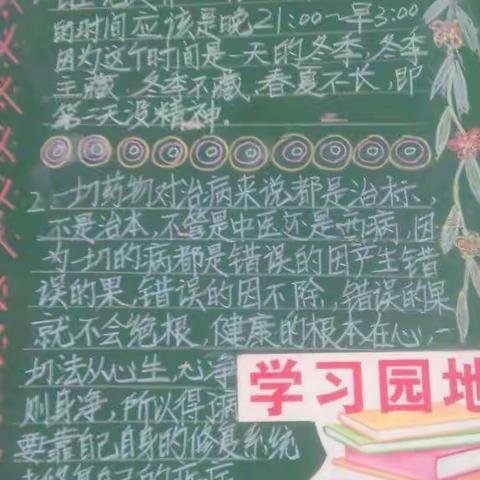 的时间应该是晚21:00-早3:00
因为这个时间是一天的冬季,冬季
主藏,冬季不藏,春夏不长,即
第二天没精神。
2.一切药物对治病来说都是治标、
不是治本,不管是中医还是西病,因
为一切的病都是错误的因产生错
误的果,错误的因不除,错误的果
就不会绝根,健康的根本在心,一
切法从心生,心净
则身净,所以得病
要靠自己自身的修复系统
去修复自己的疾病
学习园地